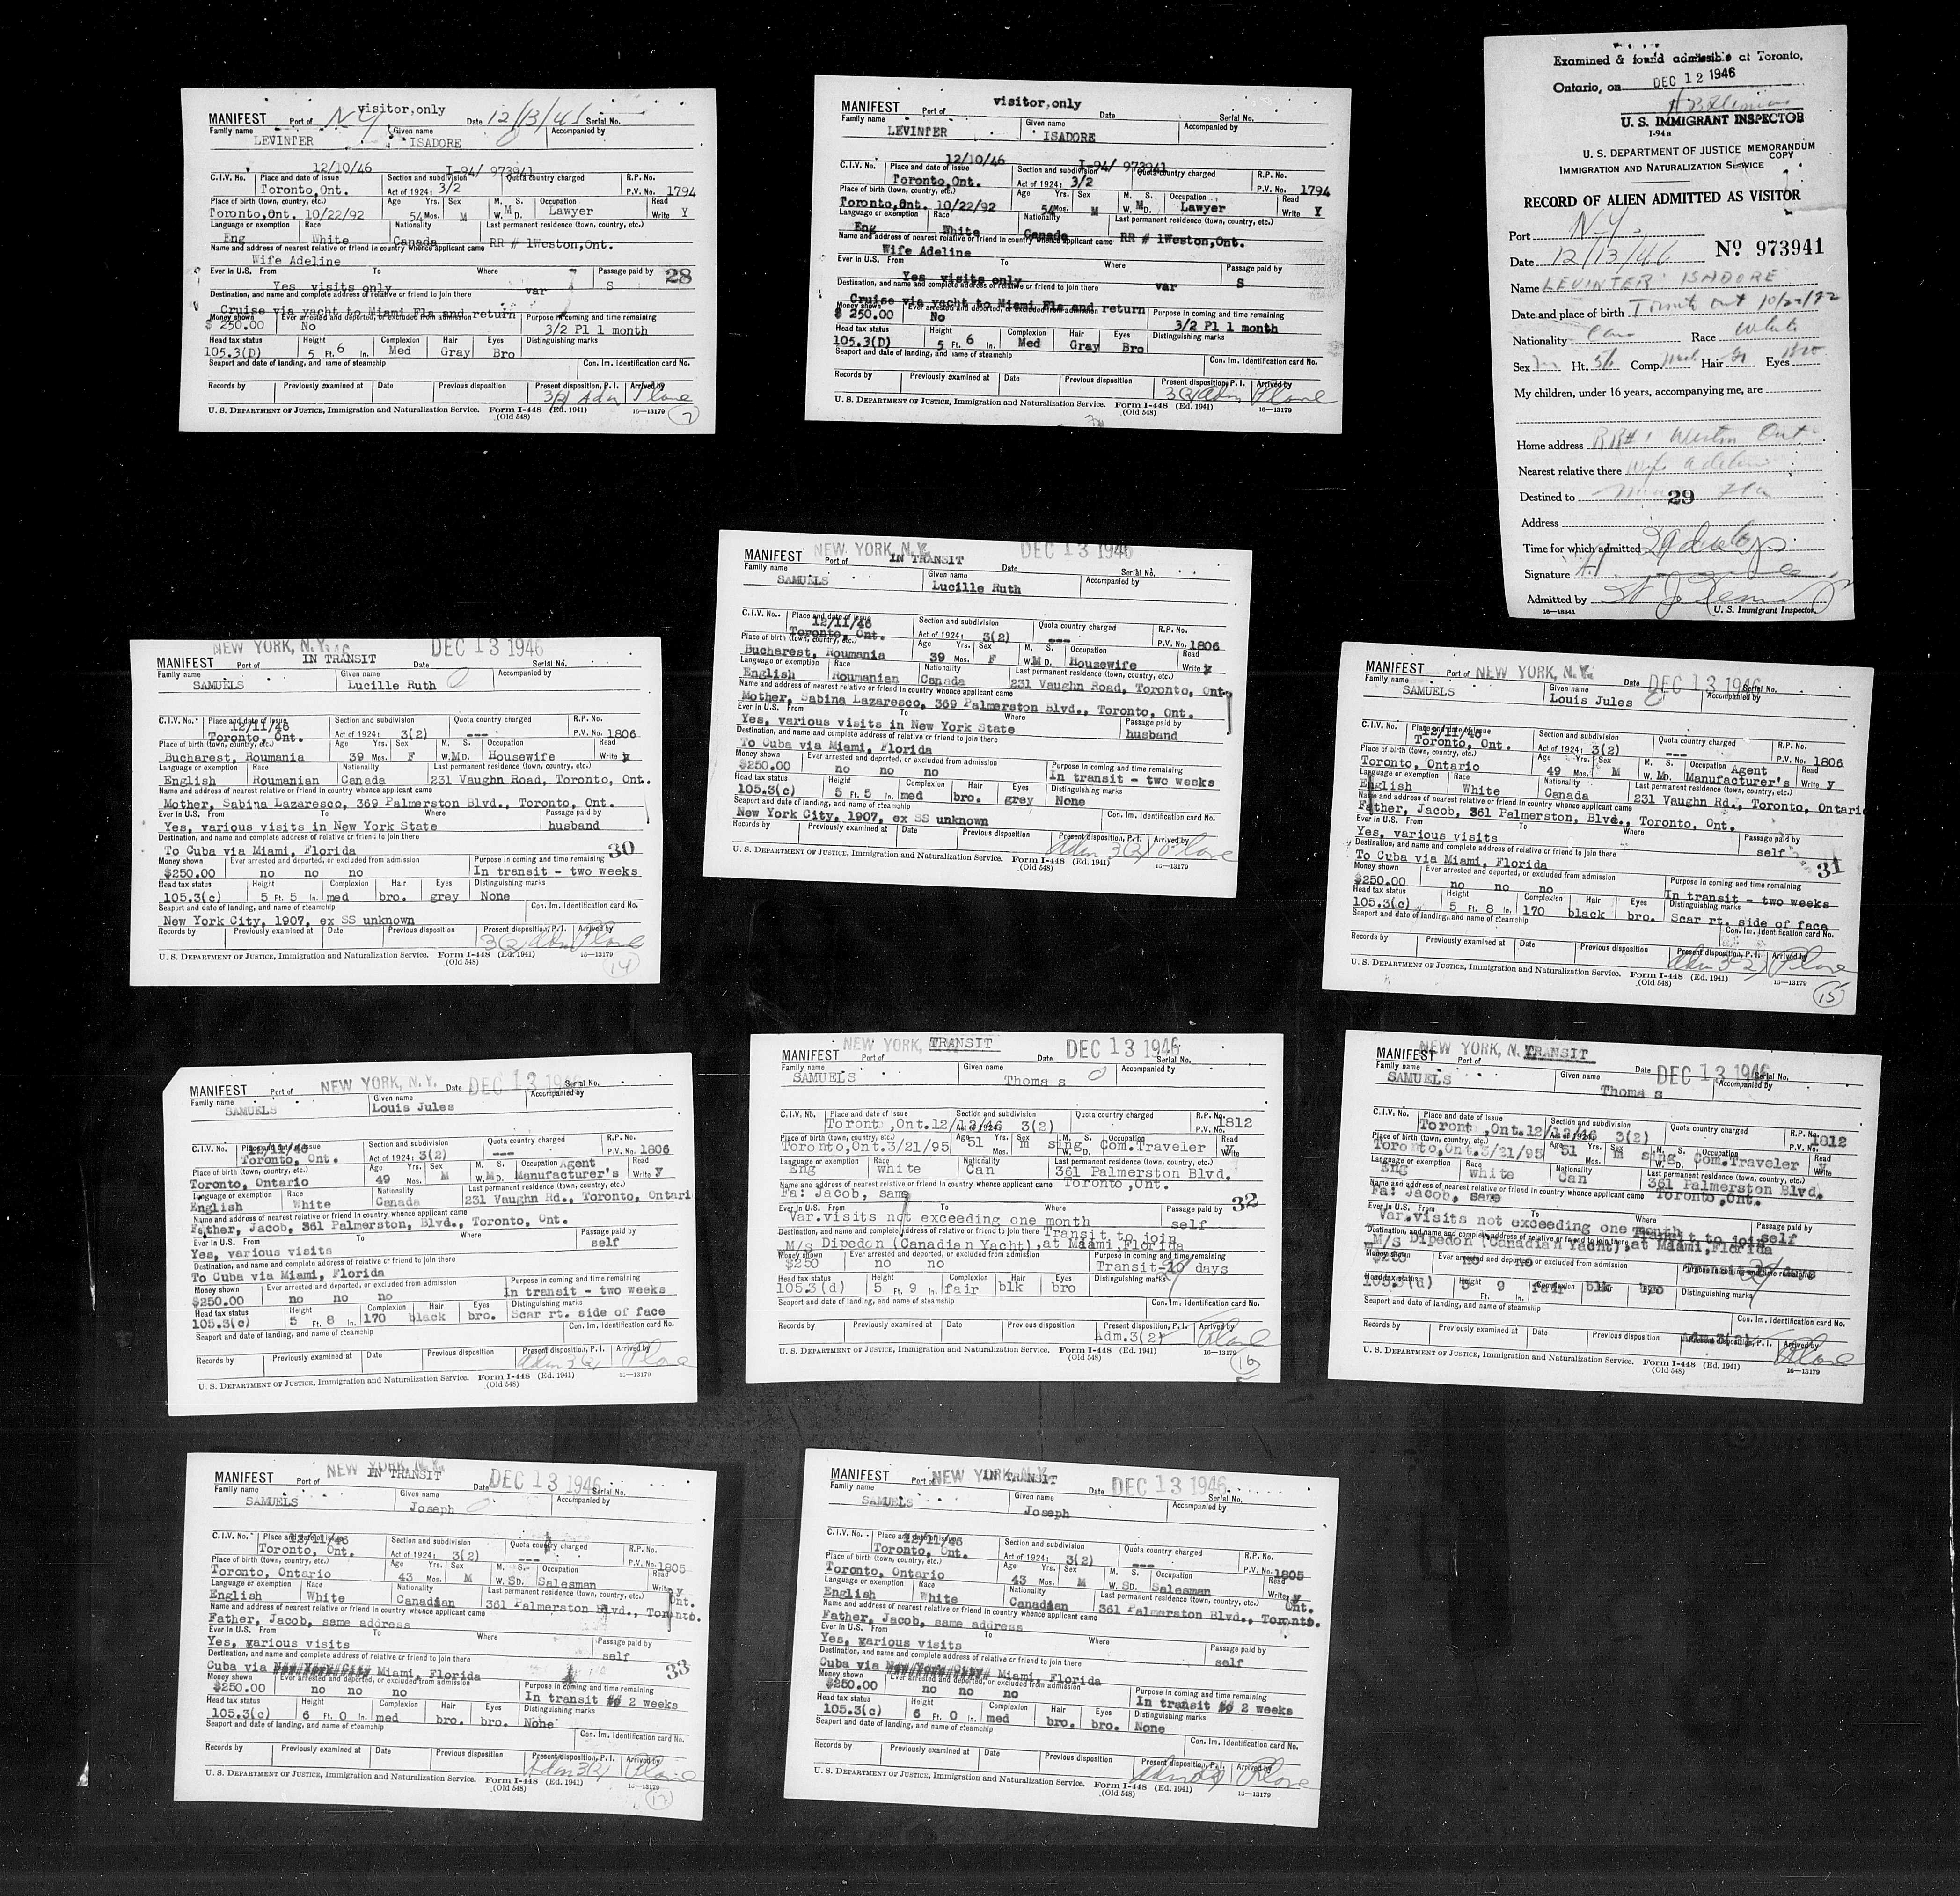 visitor,only
MANIFEST Port of N Y Date 12/13/46 Serial No.
Family name Given name Accompanied by
LEVINTER ISADORE
12/10/46 I-94/ 973941
C.I.V. No. Place and date of issue Section and subdivision Quota country charged R.P. No.
Toronto,Ont. Act of 1924: 3/2 P.V. No. 1794
Place of birth (town, country, etc.) Age Yrs. Sex M. S. Occupation Read
Toronto,Ont. 10/22/92 54 Mos. M W. M D. Lawyer Write Y
Language or exemption Race Nationality Last permanent residence (town, country, etc.)
Eng White Canada RR # 1Weston,Ont.
Name and address of nearest relative or friend in country whence applicant came
Wife Adeline
Ever in U.S. From To Where Passage paid by 28
Yes visits only var S
Destination, and name and complete address of relative or friend to join there
Cruise via yacht to Miami Fla and return
Money shown Ever arrested and deported, or excluded from admission Purpose in coming and time remaining
$ 250.00 No 3/2 Pl 1 month
Head tax status Height Complexion Hair Eyes Distinguishing marks
105.3(D) 5 Ft. 6 In. Med Gray Bro
Seaport and date of landing, and name of steamship Con. Im. Identification card No.
Records by Previously examined at Date Previous disposition Present disposition, P. I. Arrived by
3(2) Adm Plane
U. S. DEPARTMENT OF JUSTICE, Immigration and Naturalization Service. Form I-448 (Ed. 1941) 16—13179
(Old 548) 7
visitor,only
MANIFEST Port of Date Serial No.
Family name Given name Accompanied by
LEVINTER ISADORE
12/10/46 I-94/ 973941
C.I.V. No. Place and date of issue Section and subdivision Quota country charged R.P. No.
Toronto,Ont. Act of 1924: 3/2 P.V. No. 1794
Place of birth (town, country, etc.) Age Yrs. Sex M. S. Occupation Read
Toronto,Ont. 10/22/92 54 Mos. M W. M D. Lawyer Write Y
Language or exemption Race Nationality Last permanent residence (town, country, etc.)
Eng White Canada RR # 1Weston,Ont.
Name and address of nearest relative or friend in country whence applicant came
Wife Adeline
Ever in U.S. From To Where Passage paid by
Yes visits only var S
Destination, and name and complete address of relative or friend to join there
Cruise via yacht to Miami Fla and return
Money shown Ever arrested and deported, or excluded from admission Purpose in coming and time remaining
$ 250.00 No 3/2 Pl 1 month
Head tax status Height Complexion Hair Eyes Distinguishing marks
105.3(D) 5 Ft. 6 In. Med Gray Bro
Seaport and date of landing, and name of steamship Con. Im. Identification card No.
Records by Previously examined at Date Previous disposition Present disposition, P. I. Arrived by
3(2) Adm Plane
U. S. DEPARTMENT OF JUSTICE, Immigration and Naturalization Service. Form I-448 (Ed. 1941) 16—13179
(Old 548)
Examined & found admissible at Toronto,
Ontario, on DEC 12 1946
U. S. IMMIGRANT INSPECTOR
I-94a
U. S. DEPARTMENT OF JUSTICE MEMORANDUM
IMMIGRATION AND NATURALIZATION SERVICE COPY
RECORD OF ALIEN ADMITTED AS VISITOR
Port N-Y.
Date 12/13/46 No 973941
Name LEVINTER ISADORE
Date and place of birth Toronto Ont 10/22/92
Nationality Can Race White
Sex M Ht. 56 Comp. Med Hair Gr Eyes Bro
My children, under 16 years, accompanying me, are
Home address RR# 1 Weston Ont
Nearest relative there Wife Adeline
Destined to Miami 29 Fla
Address
Time for which admitted 29 days
Signature
Admitted by
16—18841 (U. S. Immigrant Inspector.)
NEW YORK, N.Y. DEC 13 1946
MANIFEST Port of IN TRANSIT Date Serial No.
Family name Given name Accompanied by
SAMUELS Lucille Ruth
C.I.V. No. Place and date of issue Section and subdivision Quota country charged R.P. No.
12/11/46
Toronto, Ont. Act of 1924: 3(2) --- P.V. No. 1806
Place of birth (town, country, etc.) Age Yrs. Sex M. S. Occupation Read
Bucharest, Roumania 39 Mos. F W. M D. Housewife Write y
Language or exemption Race Nationality Last permanent residence (town, country, etc.)
English Roumanian Canada 231 Vaughn Road, Toronto, Ont.
Name and address of nearest relative or friend in country whence applicant came
Mother, Sabina Lazaresco, 369 Palmerston Blvd., Toronto, Ont.
Ever in U.S. From To Where Passage paid by
Yes, various visits in New York State husband
Destination, and name and complete address of relative or friend to join there
To Cuba via Miami, Florida
Money shown Ever arrested and deported, or excluded from admission Purpose in coming and time remaining
$250.00 no no no In transit - two weeks
Head tax status Height Complexion Hair Eyes Distinguishing marks
105.3(c) 5 Ft. 5 In. med bro. grey None
Seaport and date of landing, and name of steamship Con. Im. Identification card No.
New York City, 1907, ex SS unknown
Records by Previously examined at Date Previous disposition Present disposition, P. I. Arrived by
Adm 3(2) Plane
U. S. DEPARTMENT OF JUSTICE, Immigration and Naturalization Service. Form I-448 (Ed. 1941) 16—13179
(Old 548)
NEW YORK, N.Y. DEC 13 1946
MANIFEST Port of IN TRANSIT Date Serial No.
Family name Given name Accompanied by
SAMUELS Lucille Ruth
C.I.V. No. Place and date of issue Section and subdivision Quota country charged R.P. No.
12/11/46
Toronto, Ont. Act of 1924: 3(2) --- P.V. No. 1806
Place of birth (town, country, etc.) Age Yrs. Sex M. S. Occupation Read
Bucharest, Roumania 39 Mos. F W. M D. Housewife Write y
Language or exemption Race Nationality Last permanent residence (town, country, etc.)
English Roumanian Canada 231 Vaughn Road, Toronto, Ont.
Name and address of nearest relative or friend in country whence applicant came
Mother, Sabina Lazaresco, 369 Palmerston Blvd., Toronto, Ont.
Ever in U.S. From To Where Passage paid by
Yes, various visits in New York State husband
Destination, and name and complete address of relative or friend to join there
To Cuba via Miami, Florida 30
Money shown Ever arrested and deported, or excluded from admission Purpose in coming and time remaining
$250.00 no no no In transit - two weeks
Head tax status Height Complexion Hair Eyes Distinguishing marks
105.3(c) 5 Ft. 5 In. med bro. grey None
Seaport and date of landing, and name of steamship Con. Im. Identification card No.
New York City, 1907, ex SS unknown
Records by Previously examined at Date Previous disposition Present disposition, P. I. Arrived by
3(2) Adm Plane
U. S. DEPARTMENT OF JUSTICE, Immigration and Naturalization Service. Form I-448 (Ed. 1941) 16—13179
(Old 548) 14
MANIFEST Port of NEW YORK, N.Y. Date DEC 13 1946 Serial No.
Family name Given name Accompanied by
SAMUELS Louis Jules
C.I.V. No. Place and date of issue Section and subdivision Quota country charged R.P. No.
12/11/46
Toronto, Ont. Act of 1924: 3(2) --- P.V. No. 1806
Place of birth (town, country, etc.) Age Yrs. Sex M. S. Occupation Agent Read
Toronto, Ontario 49 Mos. M W. M D. Manufacturer's Write y
Language or exemption Race Nationality Last permanent residence (town, country, etc.)
English White Canada 231 Vaughn Rd., Toronto, Ontario
Name and address of nearest relative or friend in country whence applicant came
Father, Jacob, 361 Palmerston, Blvd., Toronto, Ont.
Ever in U.S. From To Where Passage paid by
Yes, various visits self
Destination, and name and complete address of relative or friend to join there
To Cuba via Miami, Florida 31
Money shown Ever arrested and deported, or excluded from admission Purpose in coming and time remaining
$250.00 no no no In transit - two weeks
Head tax status Height Complexion Hair Eyes Distinguishing marks
105.3(c) 5 Ft. 8 In. 170 black bro. Scar rt. side of face
Seaport and date of landing, and name of steamship Con. Im. Identification card No.
Records by Previously examined at Date Previous disposition Present disposition, P. I. Arrived by
Adm 3(2) Plane
U. S. DEPARTMENT OF JUSTICE, Immigration and Naturalization Service. Form I-448 (Ed. 1941) 16—13179
(Old 548) 15
MANIFEST Port of NEW YORK, N.Y. Date DEC 13 1946 Serial No.
Family name Given name Accompanied by
SAMUELS Louis Jules
C.I.V. No. Place and date of issue Section and subdivision Quota country charged R.P. No.
12/11/46
Toronto, Ont. Act of 1924: 3(2) --- P.V. No. 1806
Place of birth (town, country, etc.) Age Yrs. Sex M. S. Occupation Agent Read
Toronto, Ontario 49 Mos. M W. M D. Manufacturer's Write y
Language or exemption Race Nationality Last permanent residence (town, country, etc.)
English White Canada 231 Vaughn Rd., Toronto, Ontari
Name and address of nearest relative or friend in country whence applicant came
Father, Jacob, 361 Palmerston, Blvd., Toronto, Ont.
Ever in U.S. From To Where Passage paid by
Yes, various visits self
Destination, and name and complete address of relative or friend to join there
To Cuba via Miami, Florida
Money shown Ever arrested and deported, or excluded from admission Purpose in coming and time remaining
$250.00 no no no In transit - two weeks
Head tax status Height Complexion Hair Eyes Distinguishing marks
105.3(c) 5 Ft. 8 In. 170 black bro. Scar rt. side of face
Seaport and date of landing, and name of steamship Con. Im. Identification card No.
Records by Previously examined at Date Previous disposition Present disposition, P. I. Arrived by
Adm 3(2) Plane
U. S. DEPARTMENT OF JUSTICE, Immigration and Naturalization Service. Form I-448 (Ed. 1941) 16—13179
(Old 548)
NEW YORK, TRANSIT DEC 13 1946
MANIFEST Port of Date Serial No.
Family name Given name Accompanied by
SAMUELS Thoma s
C.I.V. No. Place and date of issue Section and subdivision Quota country charged R.P. No.
Toront ,Ont.12/12/46 Act of 1924: 3(2) P.V. No. 1812
Place of birth (town, country, etc.) Age Yrs. Sex M. S. Occupation Read
Toronto,Ont.3/21/95 51 Mos. m sing W. D. Com.Traveler Write y
Language or exemption Race Nationality Last permanent residence (town, country, etc.)
Eng white Can 361 Palmerston Blvd.
Name and address of nearest relative or friend in country whence applicant came Toronto ,Ont.
Fa: Jacob, same 32
Ever in U.S. From To Where Passage paid by
Var.visits not exceeding one month self
Destination, and name and complete address of relative or friend to join there Transit to join
M/s Dipedon (Canadian Yacht),at Miami,Florida
Money shown Ever arrested and deported, or excluded from admission Purpose in coming and time remaining
$250 no no Transit- days
Head tax status Height Complexion Hair Eyes Distinguishing marks
105.3(d) 5 Ft. 9 In. fair blk bro
Seaport and date of landing, and name of steamship Con. Im. Identification card No.
Records by Previously examined at Date Previous disposition Present disposition, P. I. Arrived by
Adm.3(2) Plane
U. S. DEPARTMENT OF JUSTICE, Immigration and Naturalization Service. Form I-448 (Ed. 1941) 16—13179
(Old 548) 16
NEW YORK, N. TRANSIT DEC 13 1946
MANIFEST Port of Date Serial No.
Family name Given name Accompanied by
SAMUELS Thoma s
C.I.V. No. Place and date of issue Section and subdivision Quota country charged R.P. No.
Toront ,Ont.12/12/46 Act of 1924: 3(2) P.V. No. 1812
Place of birth (town, country, etc.) Age Yrs. Sex M. S. Occupation Read
Toronto,Ont.3/21/95 51 Mos. m sing W. D. Com.Traveler Write y
Language or exemption Race Nationality Last permanent residence (town, country, etc.)
Eng white Can 361 Palmerston Blvd.
Name and address of nearest relative or friend in country whence applicant came Toronto,Ont.
Fa: Jacob, same
Ever in U.S. From To Where Passage paid by
Var.visits not exceeding one month self
Destination, and name and complete address of relative or friend to join there Transit to join
M/s Dipedon (Canadian Yacht),at Miami,Florida
Money shown Ever arrested and deported, or excluded from admission Purpose in coming and time remaining
$250 no no Transit- days
Head tax status Height Complexion Hair Eyes Distinguishing marks
105.3(d) 5 Ft. 9 In. fair blk bro
Seaport and date of landing, and name of steamship Con. Im. Identification card No.
Records by Previously examined at Date Previous disposition Present disposition, P. I. Arrived by
Adm.3(2) Plane
U. S. DEPARTMENT OF JUSTICE, Immigration and Naturalization Service. Form I-448 (Ed. 1941) 16—13179
(Old 548)
NEW YORK, N.Y. IN TRANSIT DEC 13 1946
MANIFEST Port of Date Serial No.
Family name Given name Accompanied by
SAMUELS Joseph
C.I.V. No. Place and date of issue Section and subdivision Quota country charged R.P. No.
12/11/46
Toronto, Ont. Act of 1924: 3(2) --- P.V. No. 1805
Place of birth (town, country, etc.) Age Yrs. Sex M. S. Occupation Read
Toronto, Ontario 43 Mos. M W. S D. Salesman Write y
Language or exemption Race Nationality Last permanent residence (town, country, etc.) Ont.
English White Canadian 361 Palmerston Blvd., Toronto.
Name and address of nearest relative or friend in country whence applicant came
Father, Jacob, same address
Ever in U.S. From To Where Passage paid by
Yes, various visits self
Destination, and name and complete address of relative or friend to join there
Cuba via New York City Miami, Florida 33
Money shown Ever arrested and deported, or excluded from admission Purpose in coming and time remaining
$250.00 no no no In transit 2 weeks
Head tax status Height Complexion Hair Eyes Distinguishing marks
105.3(c) 6 Ft. 0 In. med bro. bro. None
Seaport and date of landing, and name of steamship Con. Im. Identification card No.
Records by Previously examined at Date Previous disposition Present disposition, P. I. Arrived by
Adm 3(2) Plane
U. S. DEPARTMENT OF JUSTICE, Immigration and Naturalization Service. Form I-448 (Ed. 1941) 16—13179
(Old 548) 17
NEW YORK, N.Y. IN TRANSIT DEC 13 1946
MANIFEST Port of Date Serial No.
Family name Given name Accompanied by
SAMUELS Joseph
C.I.V. No. Place and date of issue Section and subdivision Quota country charged R.P. No.
12/11/46
Toronto, Ont. Act of 1924: 3(2) --- P.V. No. 1805
Place of birth (town, country, etc.) Age Yrs. Sex M. S. Occupation Read
Toronto, Ontario 43 Mos. M W. S D. Salesman Write y
Language or exemption Race Nationality Last permanent residence (town, country, etc.) Ont.
English White Canadian 361 Palmerston Blvd., Toronto.
Name and address of nearest relative or friend in country whence applicant came
Father, Jacob, same address
Ever in U.S. From To Where Passage paid by
Yes, various visits self
Destination, and name and complete address of relative or friend to join there
Cuba via New York City Miami, Florida
Money shown Ever arrested and deported, or excluded from admission Purpose in coming and time remaining
$250.00 no no no In transit 2 weeks
Head tax status Height Complexion Hair Eyes Distinguishing marks
105.3(c) 6 Ft. 0 In. med bro. bro. None
Seaport and date of landing, and name of steamship Con. Im. Identification card No.
Records by Previously examined at Date Previous disposition Present disposition, P. I. Arrived by
Adm Plane
U. S. DEPARTMENT OF JUSTICE, Immigration and Naturalization Service. Form I-448 (Ed. 1941) 16—13179
(Old 548)